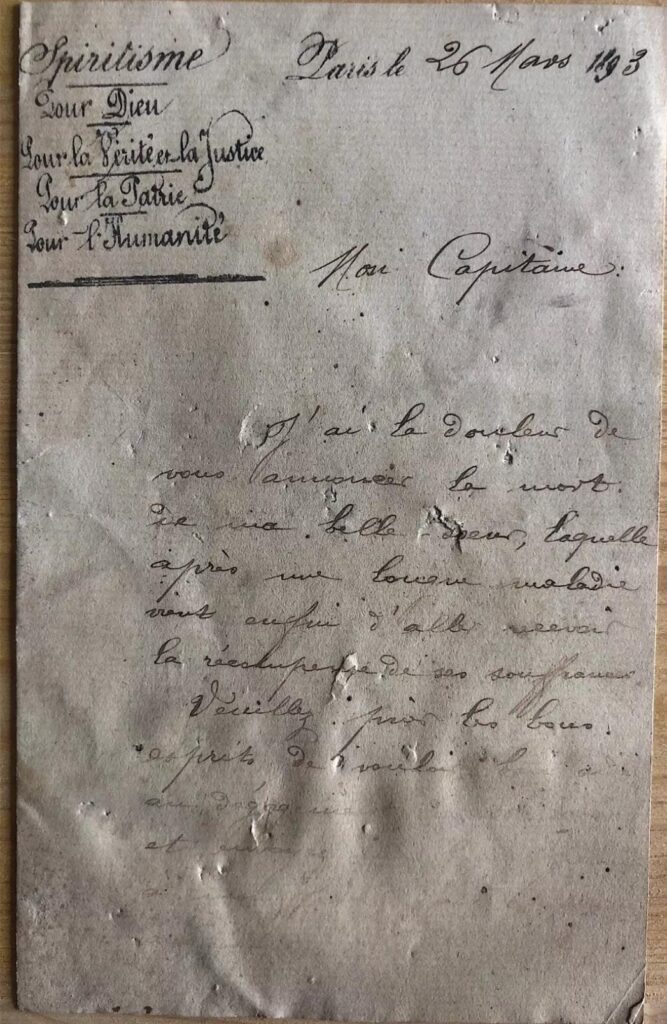 Spiritisme
Pour Dieu
Pour la Vérité et la Justice
Pour la Patrie
Pour l'Humanité
Paris le 26 Mars 1893
Mon Capitaine:
J'ai la douleur de
vous annoncer la mort
de ma belle-soeur, laquelle
après une longue maladie
vient enfin d'aller recevoir
la récompense de ses souffrances
Veuillez prier les bons
esprits de vouloir
au
et